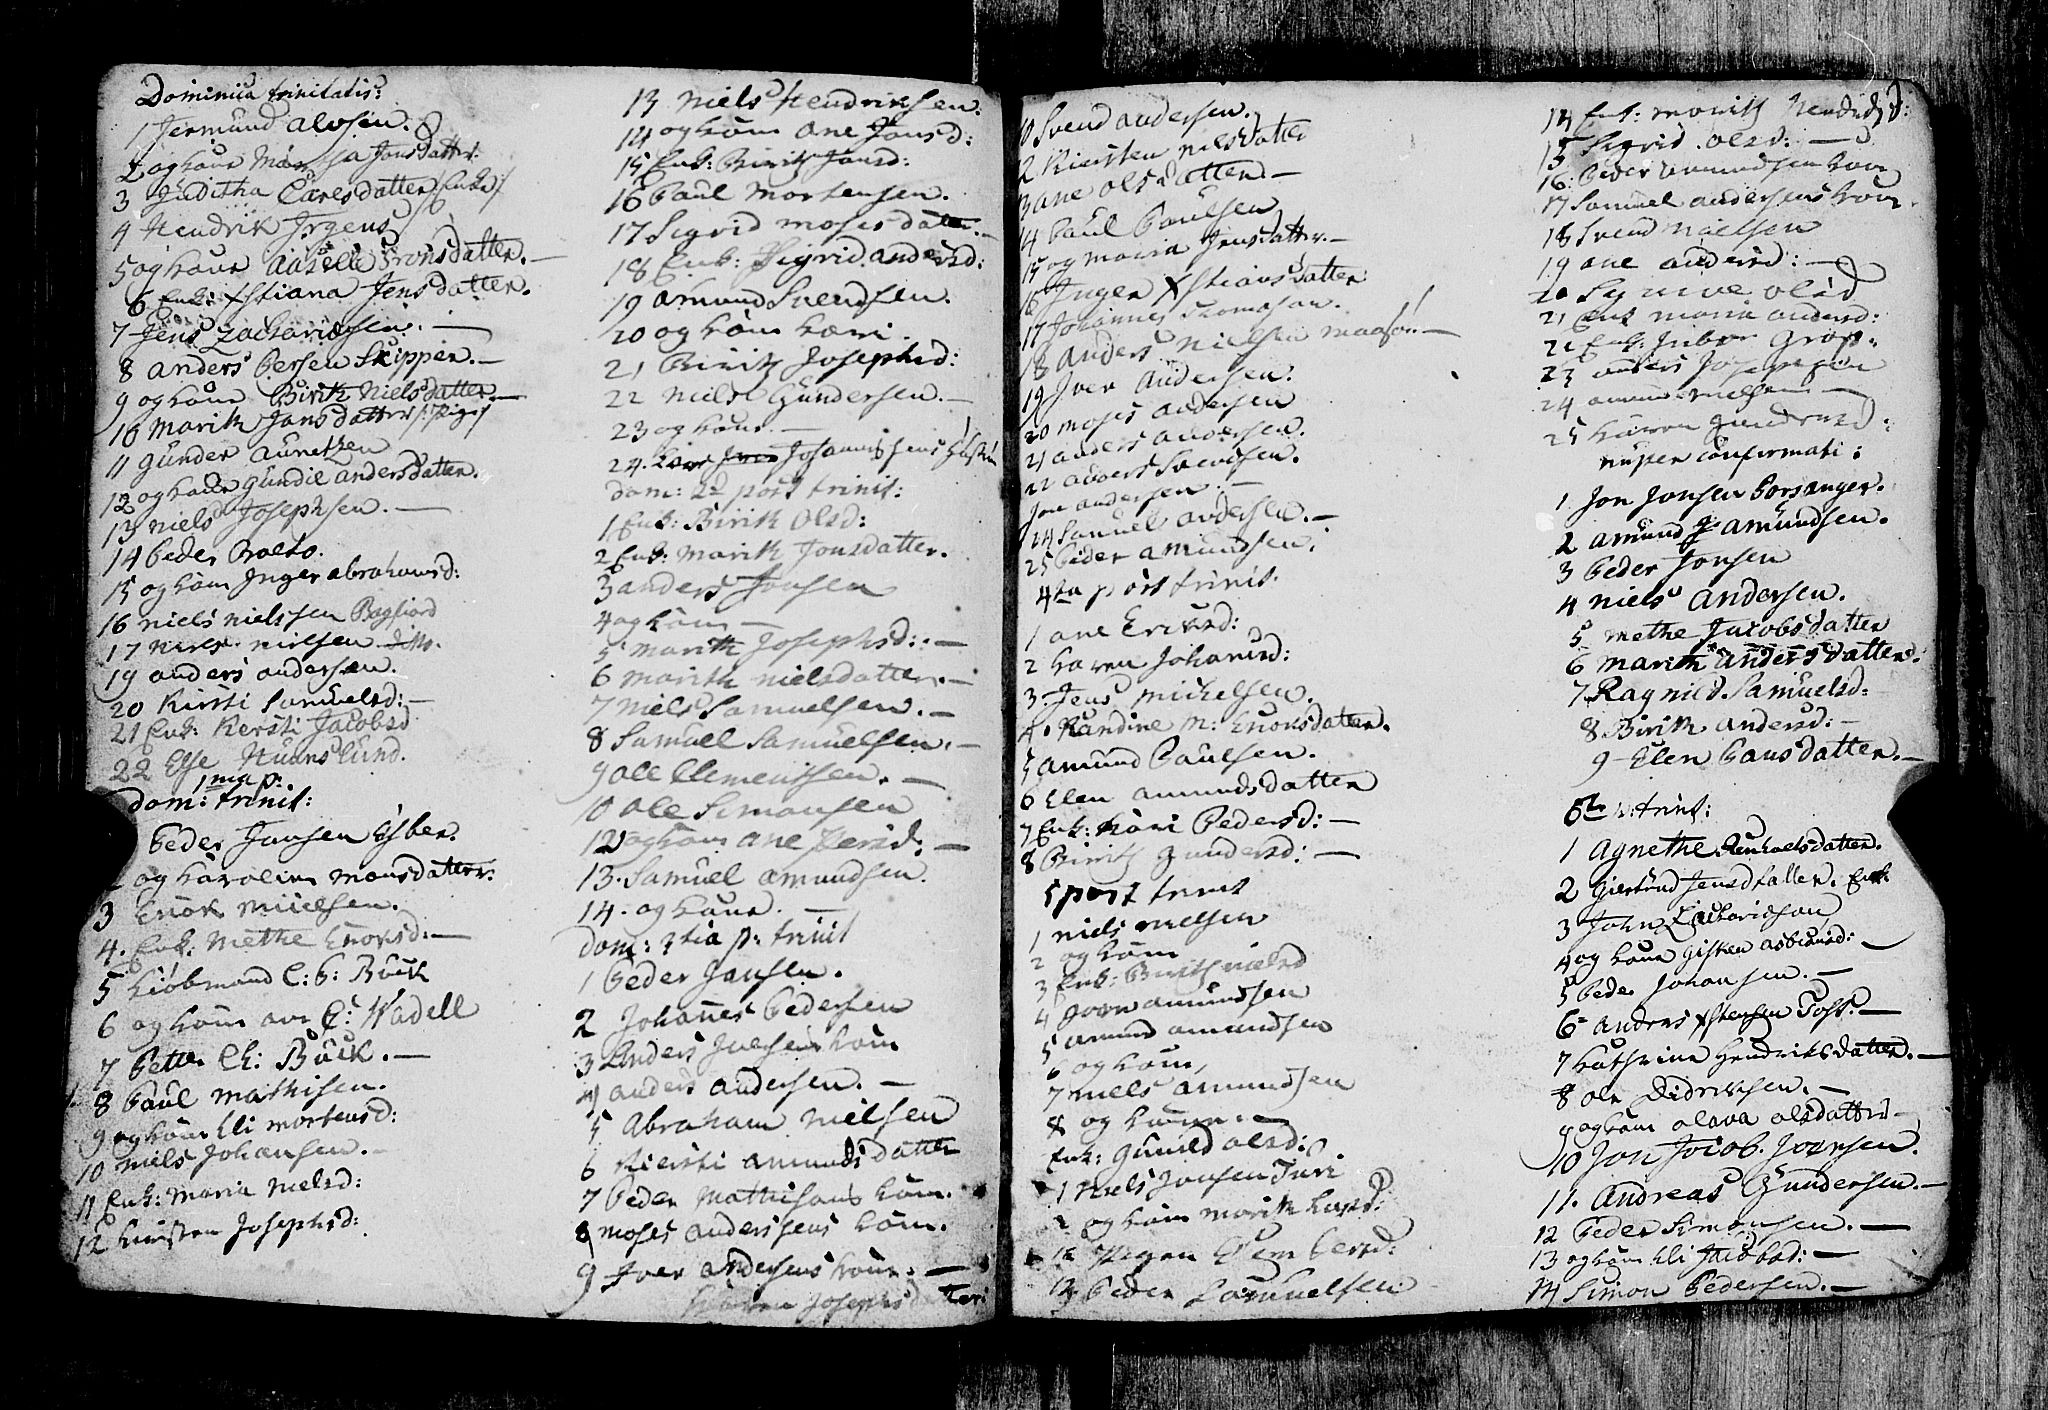 Dominica trinitatis:
1 Jermund alvsen.
2 og kone Marja Jonsdatter:
3 Juditha Carlsdatter /:Enke:/
4 Hendrik Jrgens
5 og kone Aaselle Tronsdatter. —
6 Enk: Xstiana Jensdatter.
7 Jens Zachariæsen. —
8 anders Persen Skipper. —
9 og kone Birith Nielsdatter. —
10 Marith Jonsdatter /:Pige:/
11 Gunder
12 og kone Gundil andersdatter.
13 Niels Josephsen. —
14 Peder Balto.
15 og kone Inger abrahamsd:
16 Niels Nielssen Bogfiord
17 Niels Nielsen ditto.
19 anders andersen.
20 Kirsti Samuelsd: —
21 Enk: Kersti Jacobsd
22 Esse
1ma p:
dom: trinit:
Peder Jansen Esber.
og Karolin Monsdatter.
3 Enok Nielsen.
4. Enk: Methe Enoksd: —
5 Kiøbmand C: P: Buck
6 og kone ane C: Wadell
7 Petter Ch: Buck. —
8 Paul Mathisen.
9 og kone Eli Mortensd:
10 Niels Johansen. —
11 Enk: Maria Nielsd:
12 Kirsten Josephsd:
13 Niels Hendriksen:
14 og kone Ane Jonsd:
15 Enk: Birith Jonsd:
16 Paul Mortensen.
17 Sigrid Mosesdatter. —
18 Enk: Sigrid andersd:
19 Amund Svendsen.
20 og kone Kari.
21 Birith Josephsd:
22 Niels Gundersen. —
23 og kone. —
24. Johannis Jens
dom: 2d post trinit:
1 Enk: Birith Olsd:
2 Enk: Marith Jonsdatter.
3 anders Jonsen
4 og kone —
5 Marith Josephsd: —
6 Marith Nielsdatter. —
7 Niels Samuelsen. —
8 Samuel Samuelsen. —
9 Ole Clementsen. —
10 Ole Simonsen
12 og kone Ane Persd. —
13. Samuel Amundsen.
14. og kone. —
dom: 3tia p: trinit
1 Peder Jansen.
2 Johannes Pedersen
3 Anders Iversens kone
4 anders andersen. —
5 Abraham Nielsen
6 Kiersti Amundsdatter
7 Peder Mathisens kone.
8 Moses anderssens kone.
9 Iver andersens kone. —
Karen Josephsdatter
10 Svend andersen.
12 Kiersten Nielsdatter
13 ane Olsdatter —
14 Paul Paulsen
15 og Maria Jensdatter. —
16 Inger Xstiansdatter
17 Johannes Thomasen.
18 Anders Nielsen Maasøe. —
19 Iver Andersen.
20 Moses andersen
21 anders andersen.
22 anders Svendsen.
Jon andersen. —
24 Samuel andersen. —
25 Peder amundsen.
4ta post trinit.
1 ane Ericksd:
2 Karen Johansd:
3. Jens Michelsen.
4. Randine M: Enoksdatter.
5 Amund Paulsen.
6 Elen amundsdatter
7 Enk: Kari Pedersd: —
8 Birith Gundersd: —
5 post trinit
1 Niels Nielsen
2 og kone
3 Enk: Birith Nielsd
4 amundsen
5 amund amundsen
6 og kone,
7 Niels amundsen
8 og kone. —
Enk: Gunild Olsd:
1 Niels Jonsen Juri
2 og kone Marith Larsd:
12
13 Peder Samuelsen
14 Enk: Marith Hendriksd:
15 Sigrid Olsd: —
16. Peder amundsen kone
17 Samuel andersens kone.
18 Svend Nielsen
19 ane andersd: —
20 Olsd
21 Enk Maria andersd:
22 Enk:
23 anders Josephsen
24 Nielsen —
25 Karen Gundersd.
nuper confirmati:
1 Jon Jonsen Porsanger.
2 Amund Amundsen.
3 Peder Jonsen
4 Niels Andersen.
5 Methe Jacobsdatter
6 Marith Andersdatter.
7 Ragnild Samuelsd:
8 Birith andersd: —
9 Elen Hansdatter. —
6te p: trinit:
1 Agnethe
2 Giertrud Jensdatter. Enk
3 John Zachariæsen
4 og kone Gisken asbiørnsd: —
5 Peder Johansen. —
6 Anders Xstensen Toss. —
7 Kathrina Hendriksdatter. —
8 Ole Didriksen. —
9 og kone Olava Olsdatter —
10 Jon Jacob Joensen.
11. Andreas Gundersen. —
12 Peder Simonsen. —
13 og kone Eli Jacobsd: —
14 Simon Pedersen. —